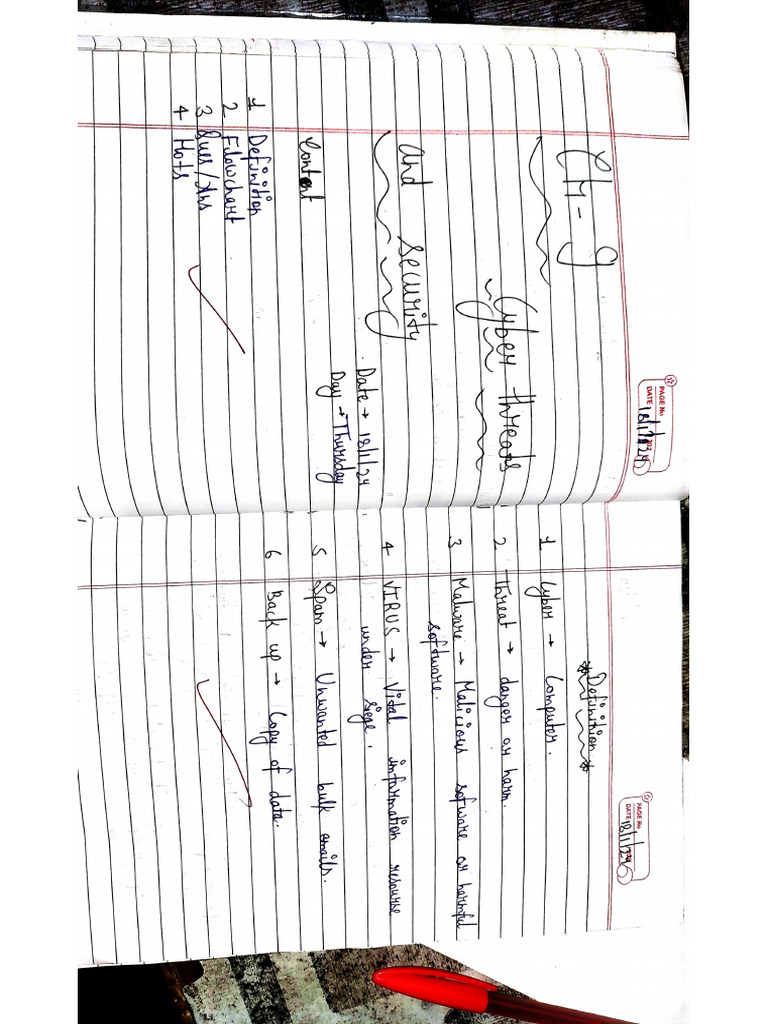 PAGE No
DATE 18/1/2024
CH-9
Cyber threats
and security
Date → 18/1/24
Day → Thursday
Content
1 Definition
2 Flowchart
3 Ques/Ans
4 Hots
PAGE No
DATE 18/1/24
*Definition*
1 Cyber → Computer.
2 Threat → danger or harm.
3 Malware → Malicious sofware or harmful
software.
4 VIRUS → Vital information resourse
under siege.
5 Spam → Unwanted bulk emails.
6 Back up → Copy of data.